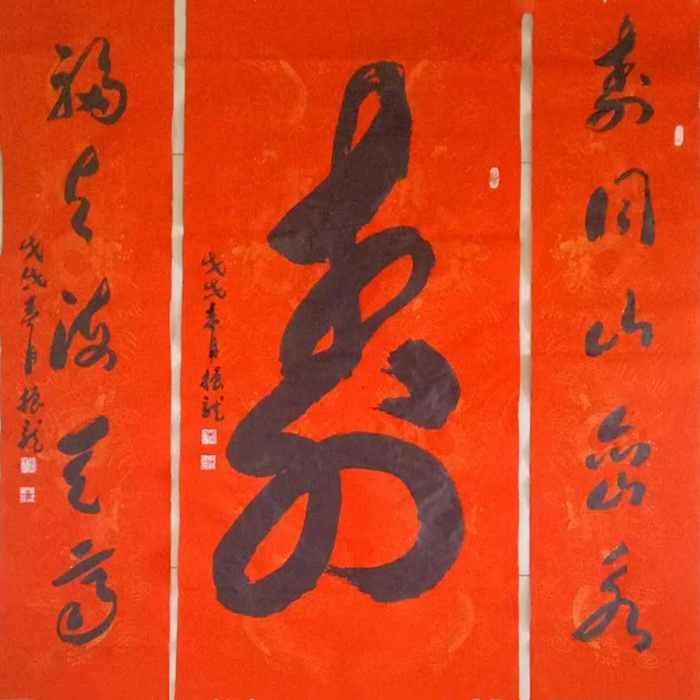 寿同山岳永
寿
戊戌春月振龙
福共海天长
戊戌春月振龙